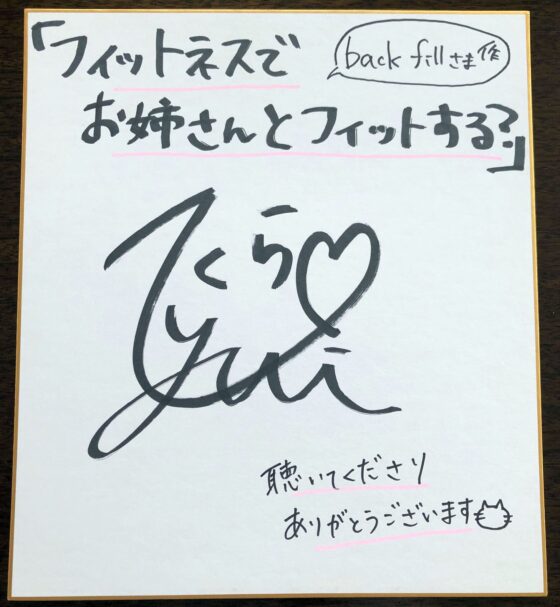 「フィットネスで
back fillさま作
お姉さんとフィットする?」
くら♡
yui
聴いてくださり
ありがとうございます